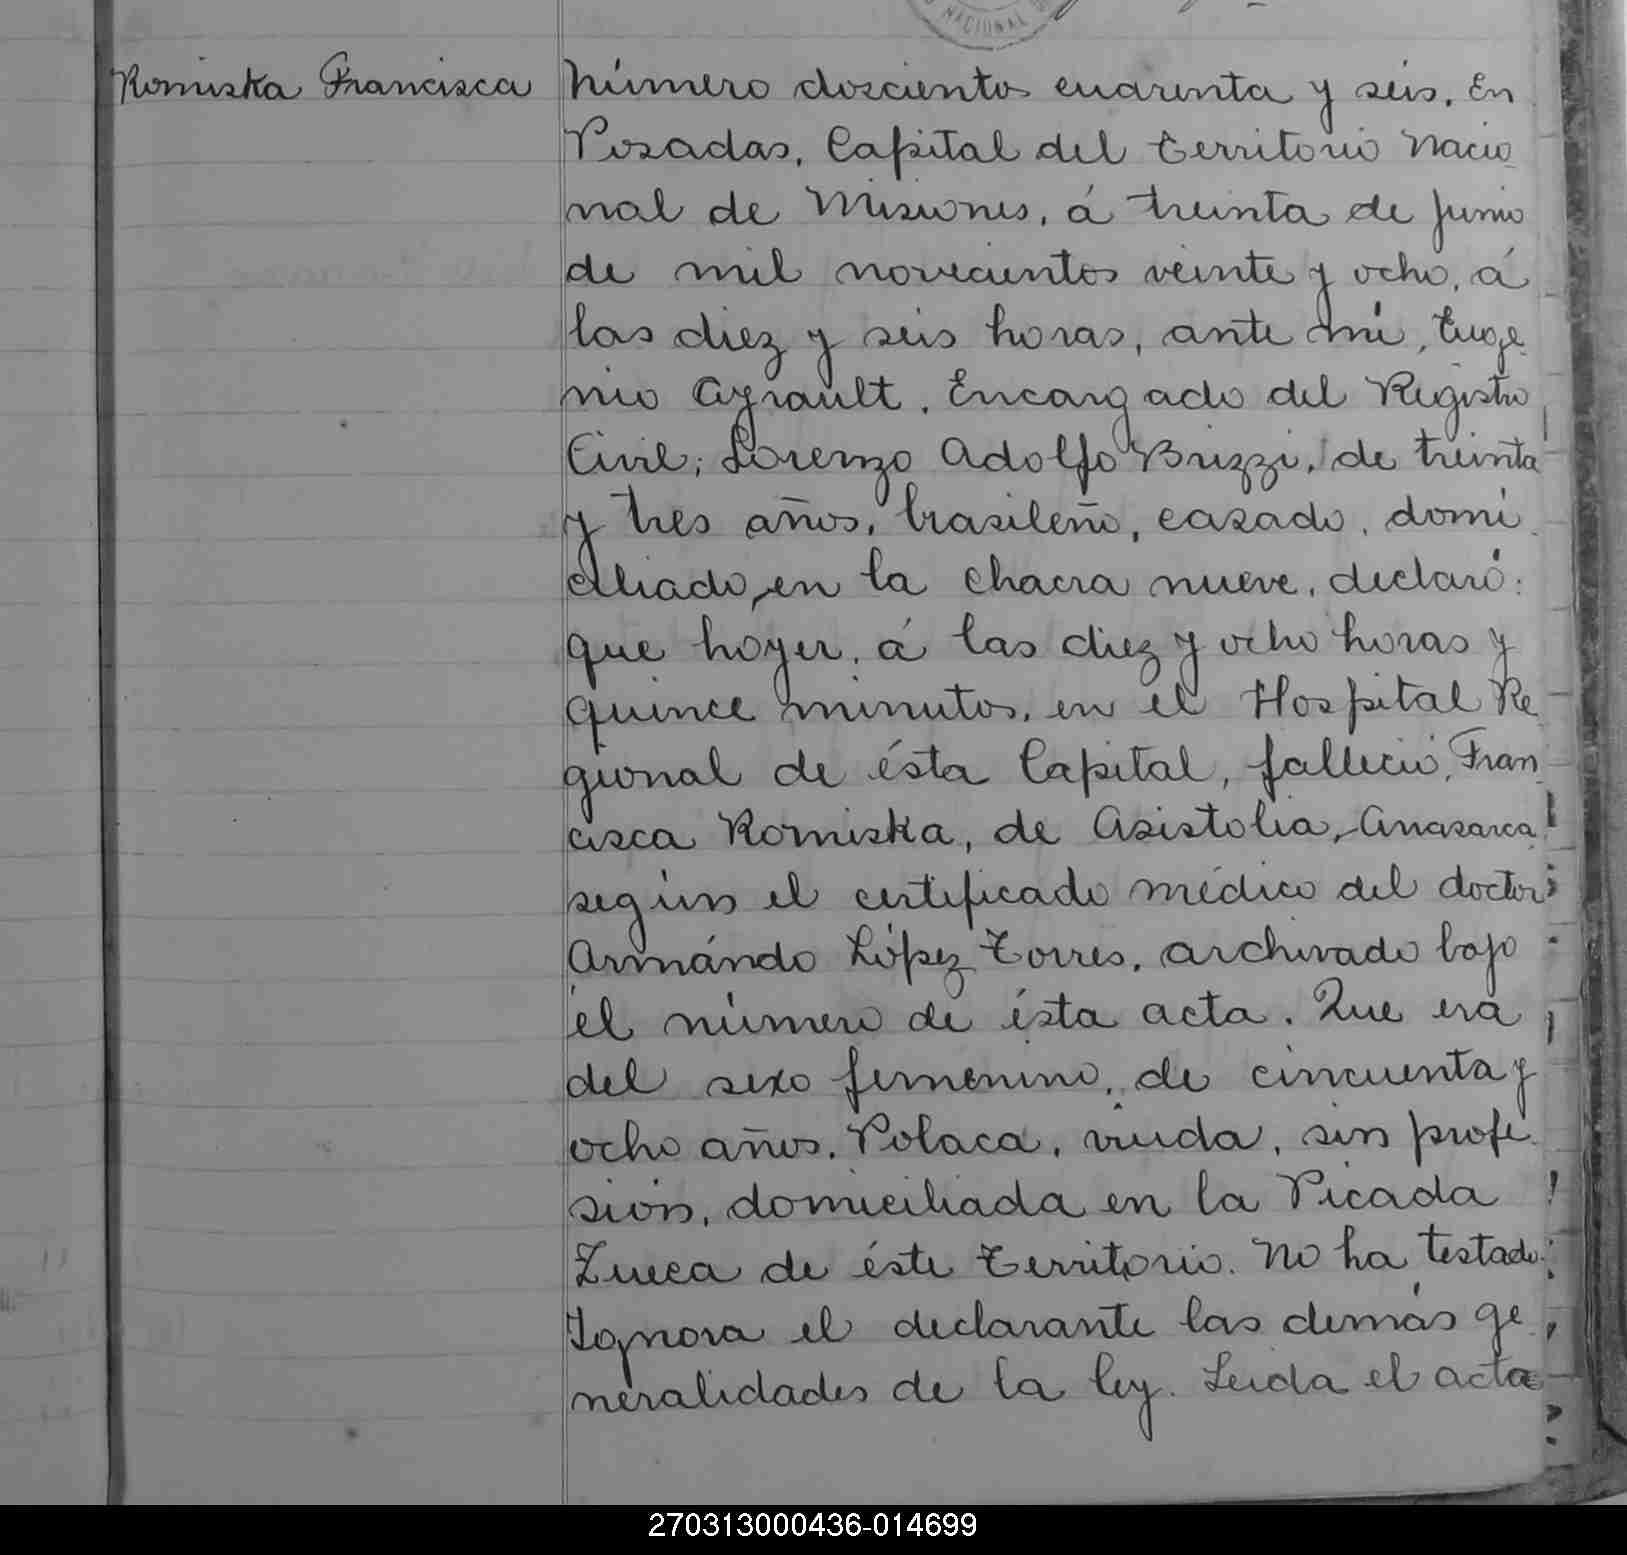 NACIONAL
Romiska Francisca
Número doscientos cuarenta y seis. En
Posadas, Capital del Territorio Nacio
nal de Misiones, á treinta de Junio
de mil novecientos veinte y ocho, á
las diez y seis horas, ante mí, Euge
nio Ayrault, Encargado del Registro
Civil; Lorenzo Adolfo Brizzi, de treinta
y tres años, brasileño, casado, domi
ciliado, en la chacra nueve, declaró:
que hoyer, á las diez y ocho horas y
quince minutos, en el Hospital Re
gional de ésta Capital, falleció, Fran
cisca Romiska, de Asistolia, Anasarca
según el certificado médico del doctor
Armándo López Torres, archivado bajo
el número de ésta acta. Que era
del sexo femenino, de cincuenta y
ocho años, Polaca, viuda, sin profe
sión, domiciliada en la Picada
Zueca de éste Territorio. No ha testado.
Ignora el declarante las demás ge
neralidades de la ley. Leida el acta
270313000436-014699